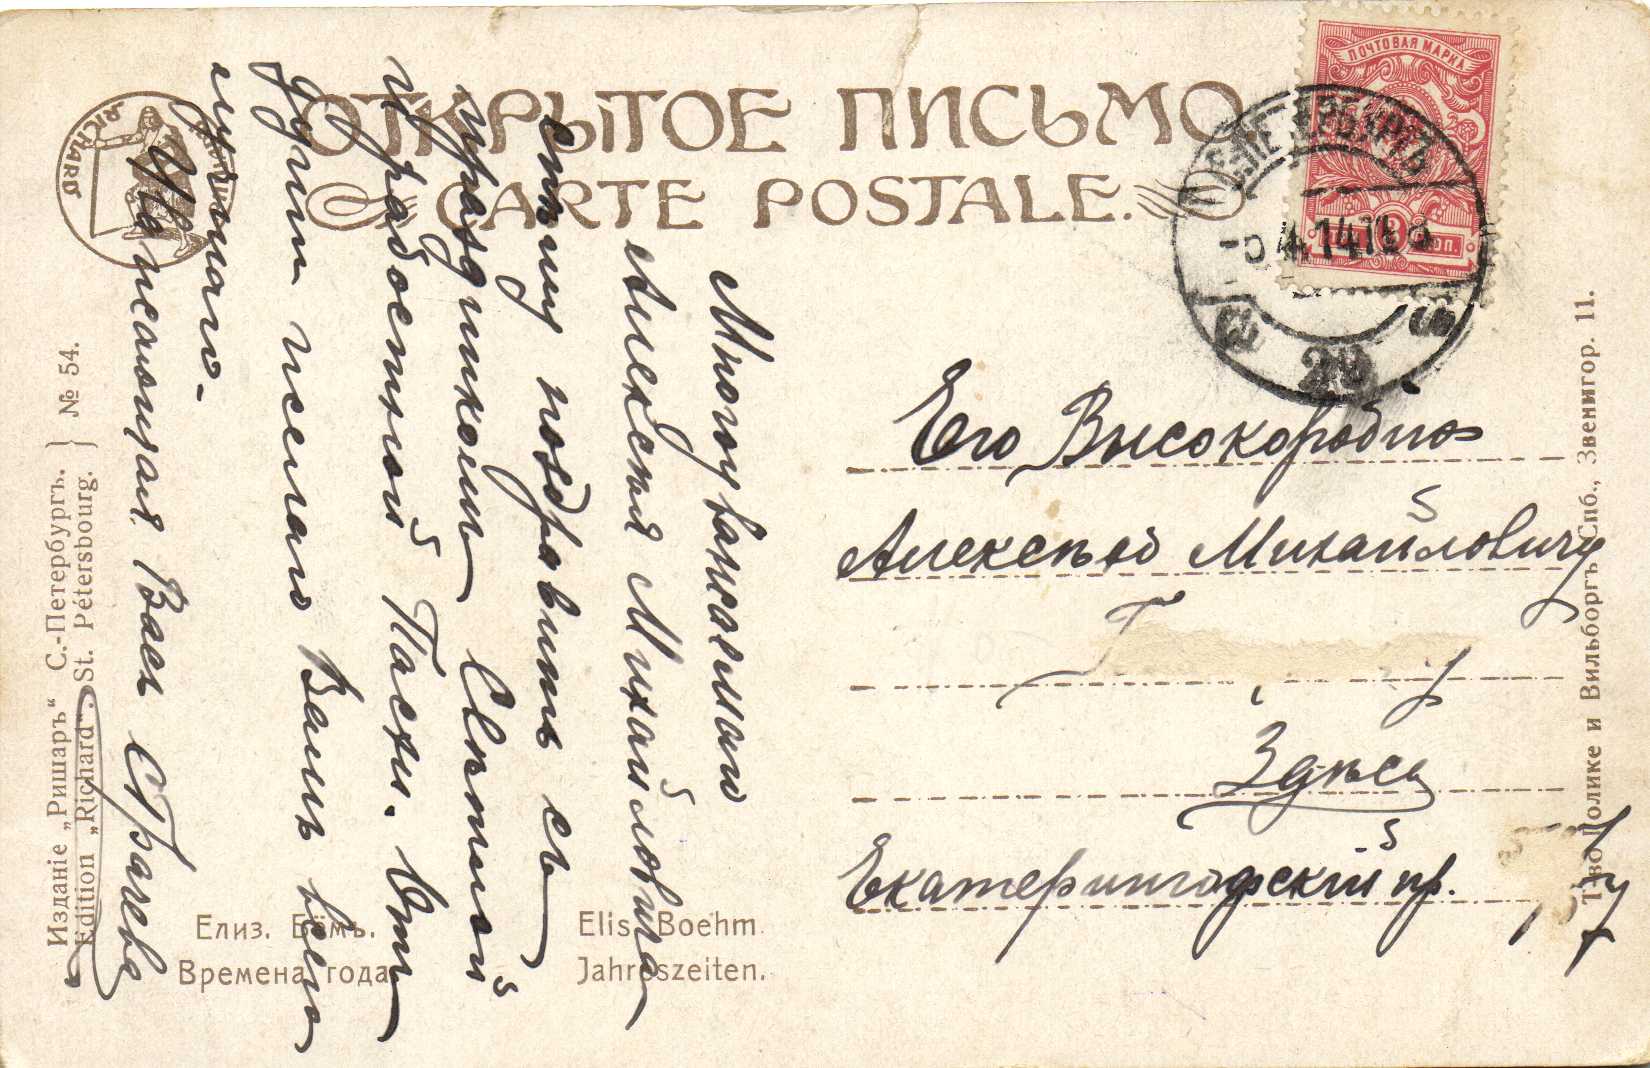 ОТКРЫТОЕ ПИСЬМО
CARTE POSTALE.
RICHARD
ПОЧТОВАЯ МАРКА
С.ПЕТЕРБУРГЪ
-5.4.14
20
Многоуважаемаго
Алексѣя Михайловича
спѣшу поздравить съ
праздникомъ Свѣтлой
и радостной Пасхи. Отъ
души желаю Вамъ всего
лучшаго.
Уважающая Васъ
Его Высокородію
Алексѣю Михайловичу
Здѣсь
Екатерингофскій пр.
Изданіе „Ришаръ“ С.-Петербургъ.
Edition „Richard“. St. Pétersbourg.
№ 54.
Елиз. Бёмъ.
Времена года
Elis. Boehm.
Jahreszeiten.
Т-во Голике и Вильборгъ, Спб., Звенигор. 11.